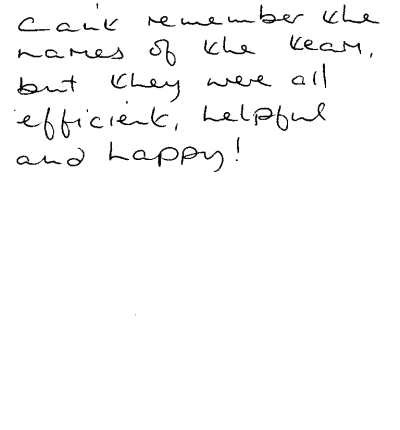 Can't remember the
names of the team,
but they were all
efficient, helpful
and happy!